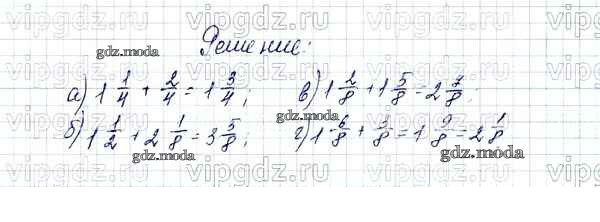 vipgdz.ru vipgdz.ru vipgdz.ru vipgdz.ru
Решение:
gdz.moda
а) 1 1/4 + 2/4 = 1 3/4; в) 1 2/8 + 1 5/8 = 2 7/8
gdz.moda
б) 1 1/2 + 2 1/8 = 3 5/8; г) 1 6/8 + 3/8 = 1 9/8 = 2 1/8
gdz.moda gdz.moda
vipgdz.ru vipgdz.ru vipgdz.ru vipgdz.ru